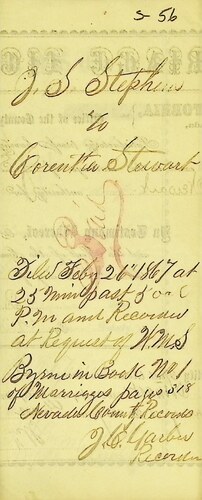 5-56
J. S Stephens
to
Corentha Stewart
Paid
Filed Feby 26th 1867 at
25 Min past 5 o'c
P.M and Recorded
at Request of W.M.S
Byrne in Book No 1
of Marriages page 518
Nevada County Records
J. C. Garber
Recorder